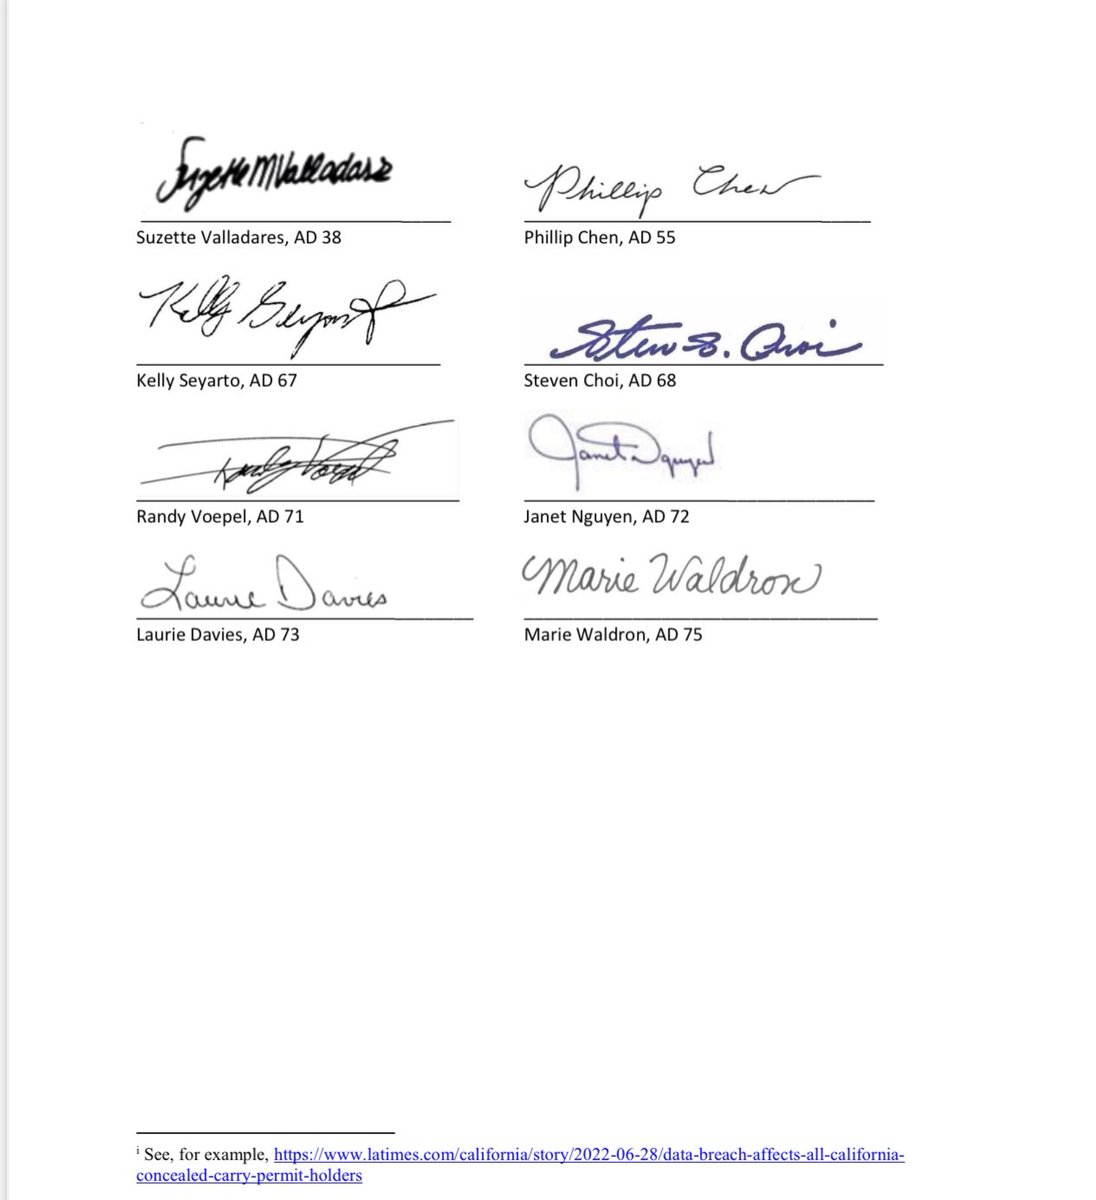 Suzette M Valladares
Phillip Chen
Suzette Valladares, AD 38
Phillip Chen, AD 55
Kelly Seyarto
Steven S. Choi
Kelly Seyarto, AD 67
Steven Choi, AD 68
Randy Voepel
Janet Nguyen
Randy Voepel, AD 71
Janet Nguyen, AD 72
Laurie Davies
Marie Waldron
Laurie Davies, AD 73
Marie Waldron, AD 75
i See, for example, https://www.latimes.com/california/story/2022-06-28/data-breach-affects-all-california-
concealed-carry-permit-holders